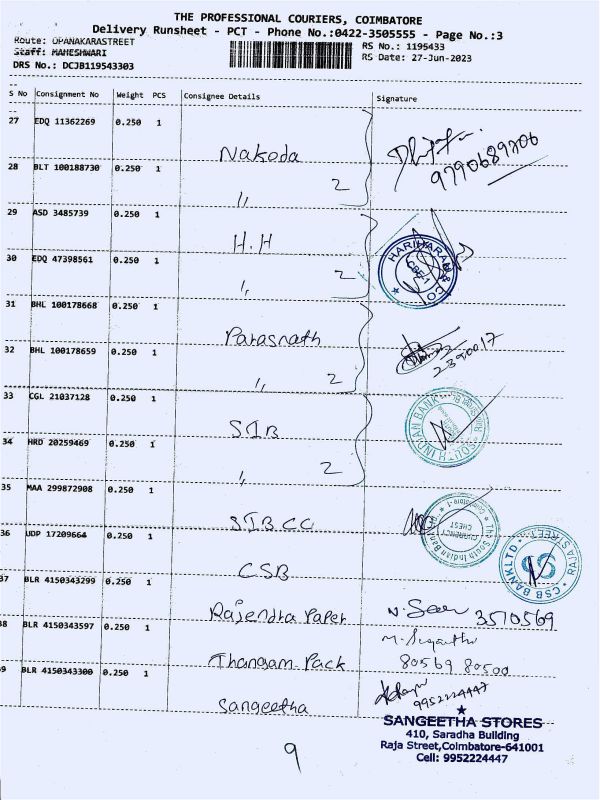 THE PROFESSIONAL COURIERS, COIMBATORE
Delivery Runsheet - PCT - Phone No.:0422-3505555 - Page No.:3
Route: OPANAKARASTREET
RS No.: 1195433
Staff: MAHESHWARI
RS Date: 27-Jun-2023
DRS No.: DCJB119543303
S No Consignment No Weight PCS Consignee Details Signature
27 EDQ 11362269 0.250 1 Nakoda
9790689706
28 BLT 100188730 0.250 1 ,, 2
29 ASD 3485739 0.250 1 H.H
HARIHARAN & CO
CBE-1
30 EDQ 47398561 0.250 1 ,, 2
31 BHL 100178668 0.250 1 Parasnath
2390017
32 BHL 100178659 0.250 1 ,, 2
33 CGL 21037128 0.250 1 SIB
SOUTH INDIAN BANK
34 HRD 20259469 0.250 1 ,, 2
35 MAA 299872908 0.250 1 SIB CC
The South Indian Bank
CURRENCY CHEST
36 UDP 17209664 0.250 1 CSB
CSB BANK LTD
RAJA STREET
37 BLR 4150343299 0.250 1 Rajendra Paper
3570569
38 BLR 4150343597 0.250 1 Thangam Pack
80569 80500
39 BLR 4150343300 0.250 1 Sangeetha
9952224447
SANGEETHA STORES
410, Saradha Building
Raja Street,Coimbatore-641001
Cell: 9952224447
9